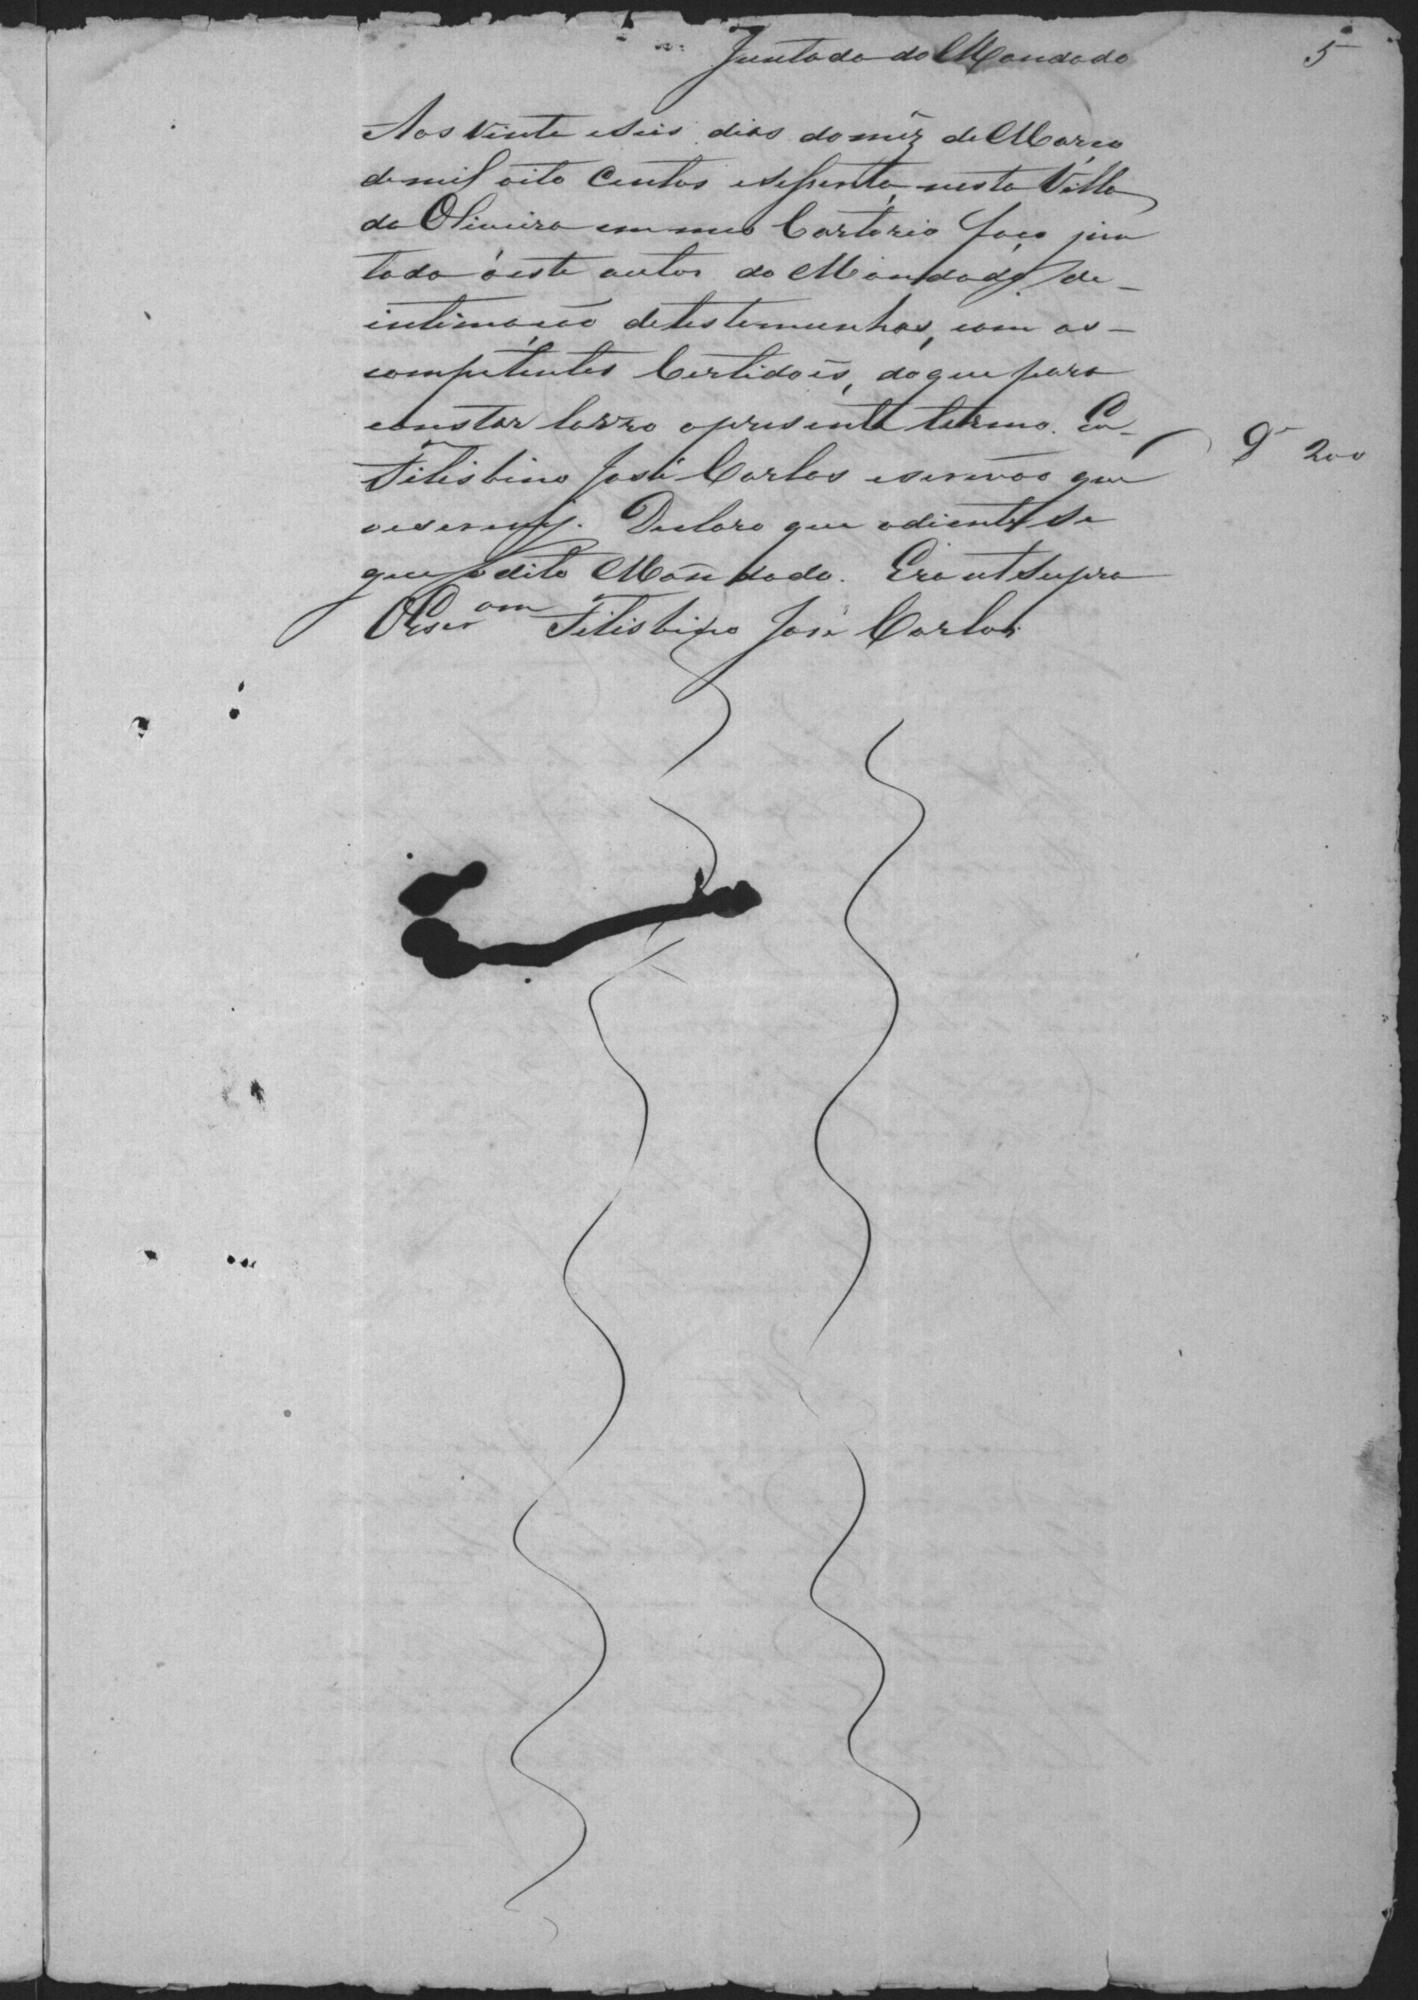 Juntada do Mandado
5
Aos vinte e seis dias do mêz de Março
de mil oito centos e sessenta, nesta Villa
da Oliveira em meo Cartorio faço jun
tada á este autos do Mandado de
intimação de testemunhas, com as
competentes Certidoẽs, do que para
constar lavro o presente termo. Eu
Felisbino José Carlos escrivão que
o escrevy. Declaro que adiente se
gue o dito Mandado. Era ut supra
O Escr.am Felisbino José Carlos
200